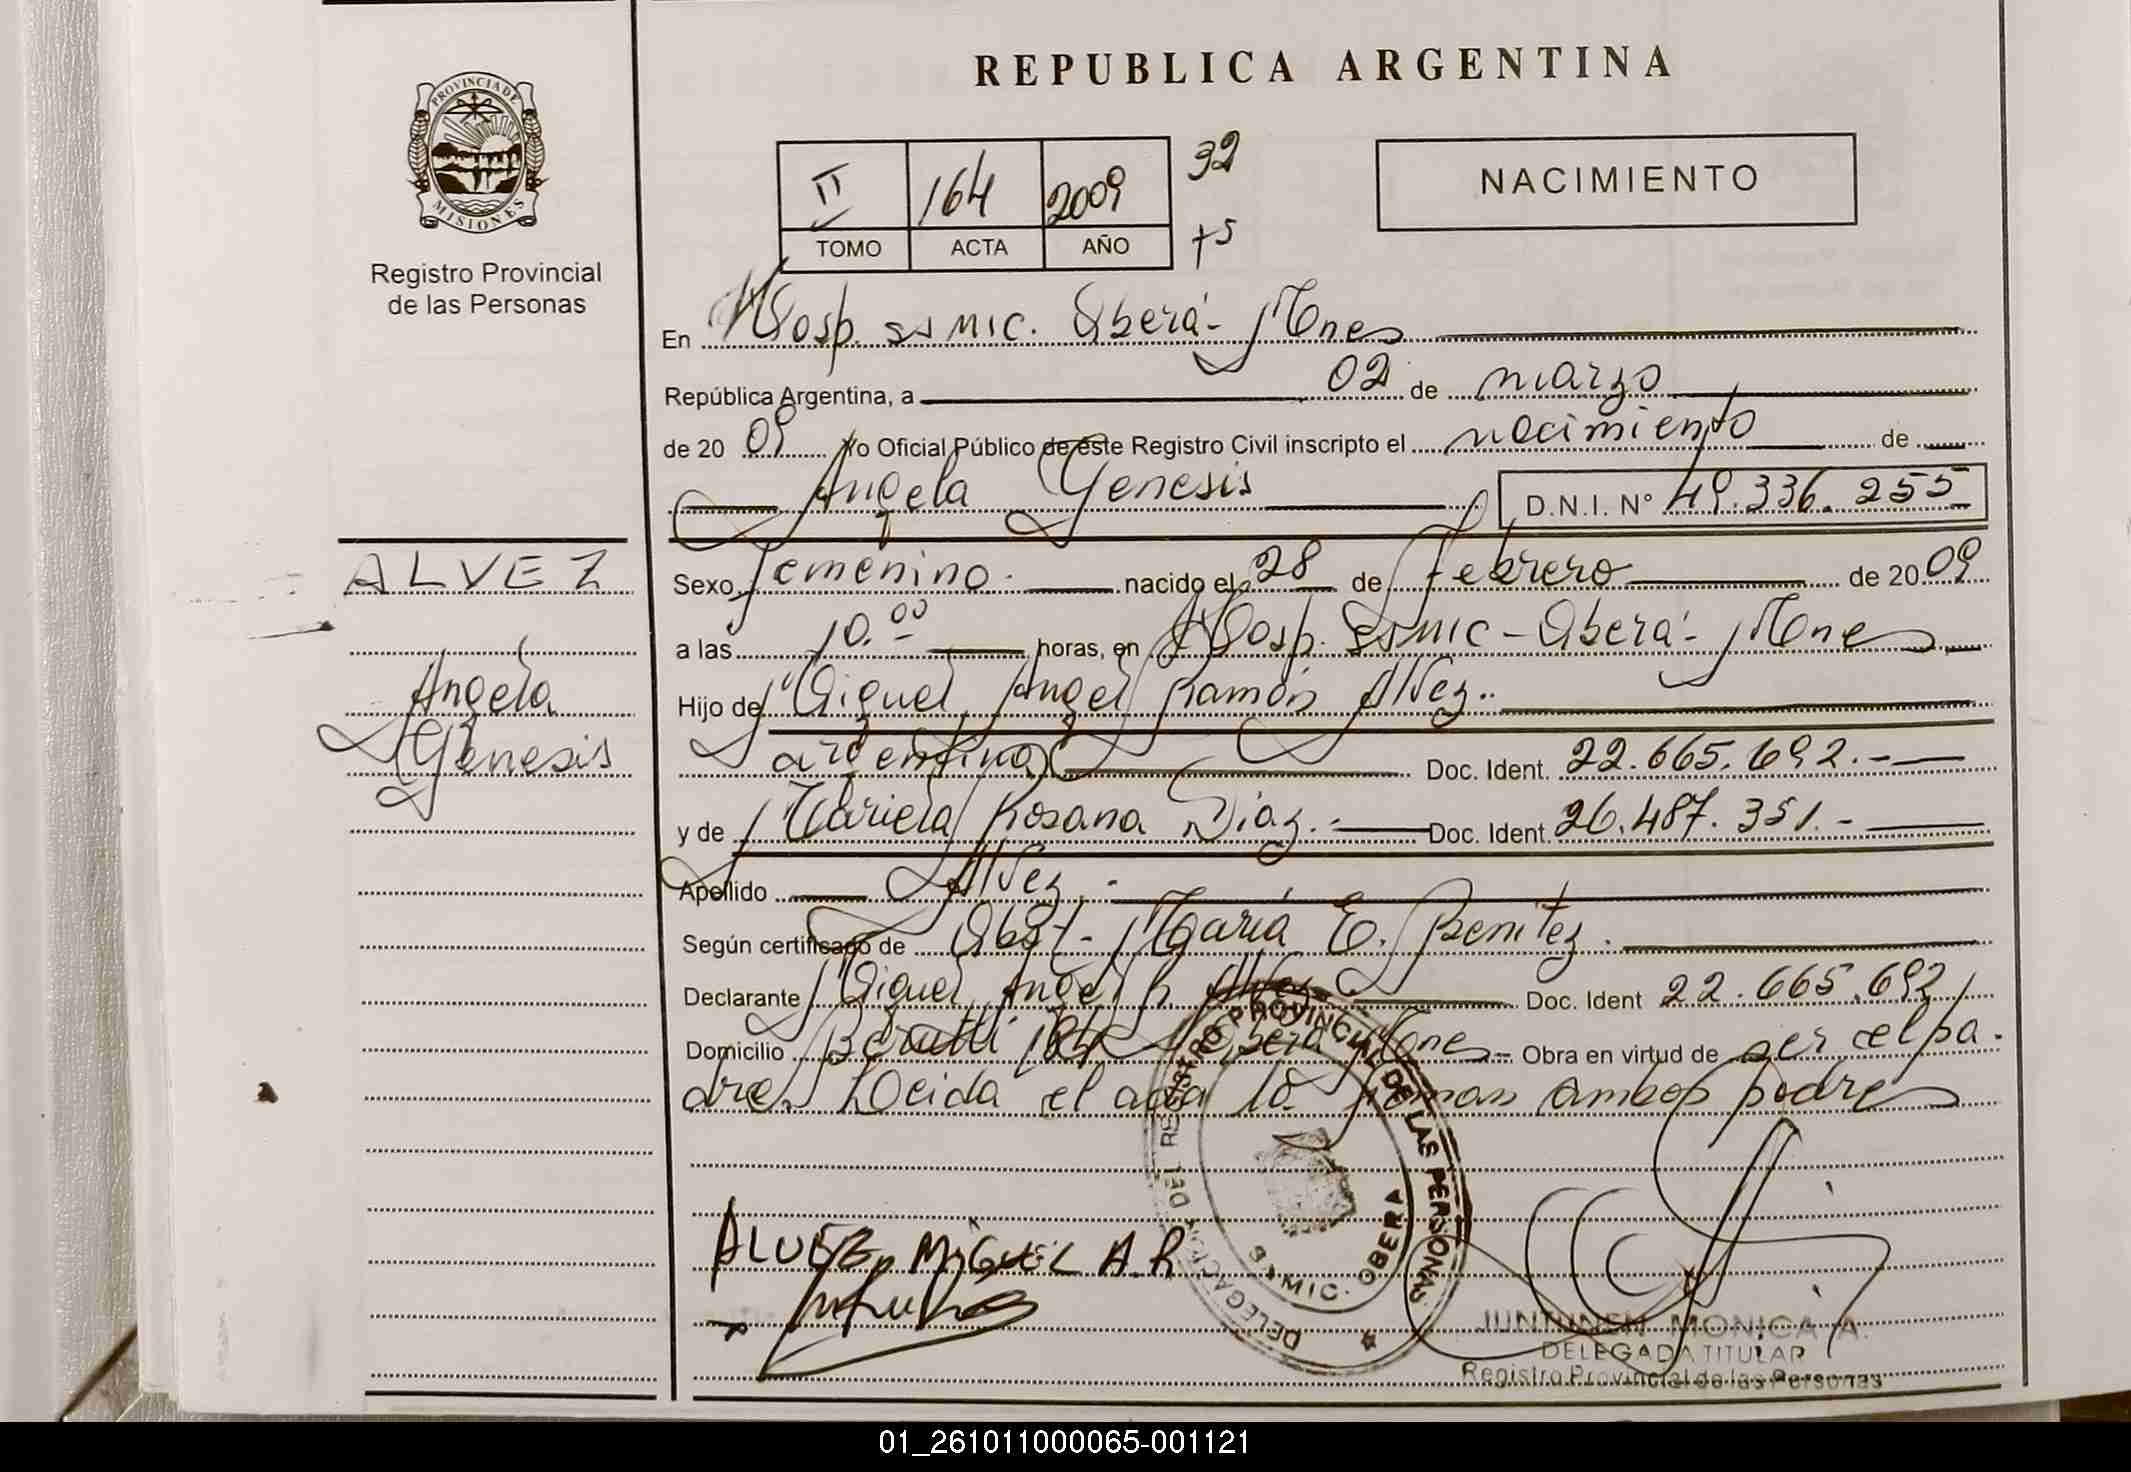 REPUBLICA ARGENTINA
PROVINCIA DE
MISIONES
Registro Provincial
de las Personas
II 164 2009 32
TOMO ACTA AÑO +5
NACIMIENTO
En Hosp. ssmic. Oberá- Mnes
República Argentina, a 02 de marzo
de 2009 Yo Oficial Público de este Registro Civil inscripto el nacimiento de
Angela Genesis D.N.I. Nº 49.336.255
ALVEZ
Angela
Genesis
Sexo femenino. nacido el 28 de Febrero de 2009
a las 10.00 horas, en Hosp. ssmic-Oberá- Mnes
Hijo de Miguel Angel Ramón Alvez.-
argentino Doc. Ident. 22.665.692.-
y de Mariela Rosana Diaz.- Doc. Ident. 26.487.351.-
Apellido Alvez.-
Según certificado de Obst- María E. Benitez.
Declarante Miguel Angel R Alvez Doc. Ident 22.665.692
Domicilio Beratti 184 Oberá Mnes- Obra en virtud de ser el pa-
dre. Leida el acta la firman ambos padres
ALVEZ, MIGUEL A.R
DELEGACION DEL REGISTRO PROVINCIAL DE LAS PERSONAS
SSMIC. OBERA
JUNTUNEN MONICA A.
DELEGADA TITULAR
Registro Provincial de las Personas
01_261011000065-001121